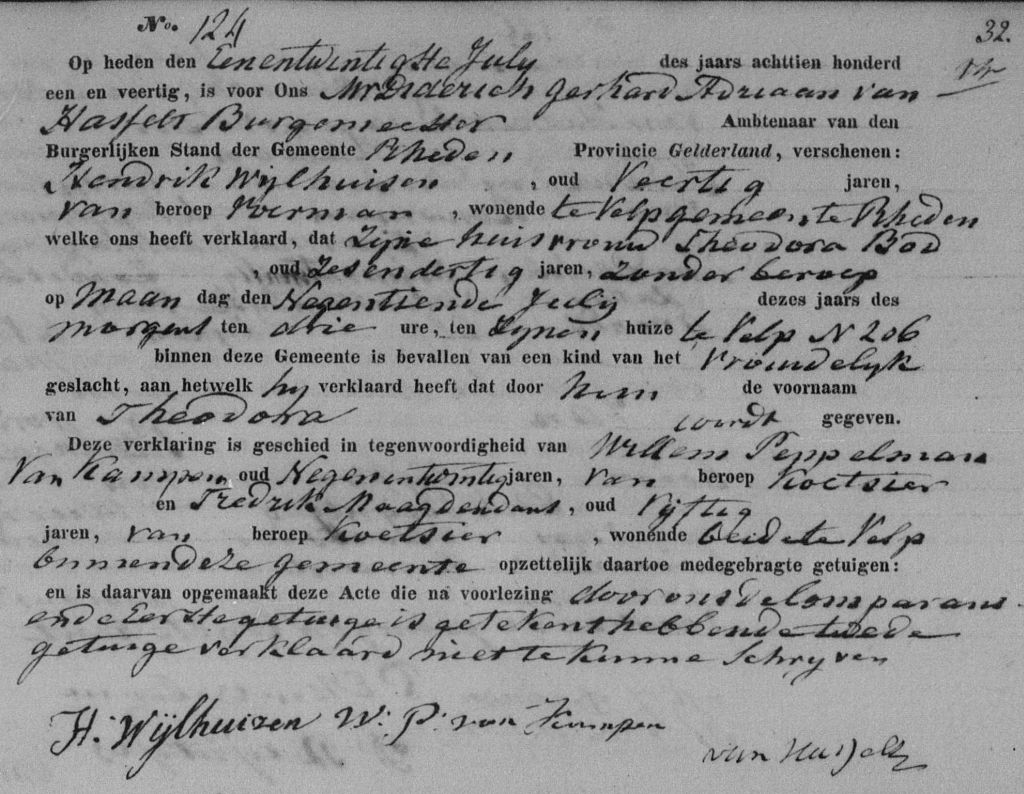 No. 124
32.
Op heden den Eenentwintigste July des jaars achttien honderd
een en veertig, is voor Ons Mr Diderich Gerhard Adriaan van
Hasselt Burgemeester Ambtenaar van den
Burgerlijken Stand der Gemeente Rheden Provincie Gelderland, verschenen:
Hendrik Wijlhuisen, oud Veertig jaren,
van beroep Voerman, wonende te Velp gemeente Rheden
welke ons heeft verklaard, dat Zijne huisvrouw Theodora Bod
, oud Zesendertig jaren, Zonder beroep
op Maan dag den Negentiende July dezes jaars des
morgens ten drie ure, ten Zynen huize te Velp N 206
binnen deze Gemeente is bevallen van een kind van het Vrouwdelyk
geslacht, aan hetwelk hy verklaard heeft dat door hem de voornaam
van Theodora wordt gegeven.
Deze verklaring is geschied in tegenwoordigheid van Willem Peppelman
Van Kampen oud Negenentwintig jaren, van beroep Koetsier
en Fredrik Maagdendans, oud Vijftig
jaren, van beroep Koetsier, wonende beide te Velp
binnen deze gemeente opzettelijk daartoe medegebragte getuigen:
en is daarvan opgemaakt deze Acte die na voorlezing door ons de Comparant
en de Eerste getuige is getekent hebbende de twede
getuige verklaard niet te kunne Schryven
H. Wijlhuizen W. P. van Kampen
van Hasselt